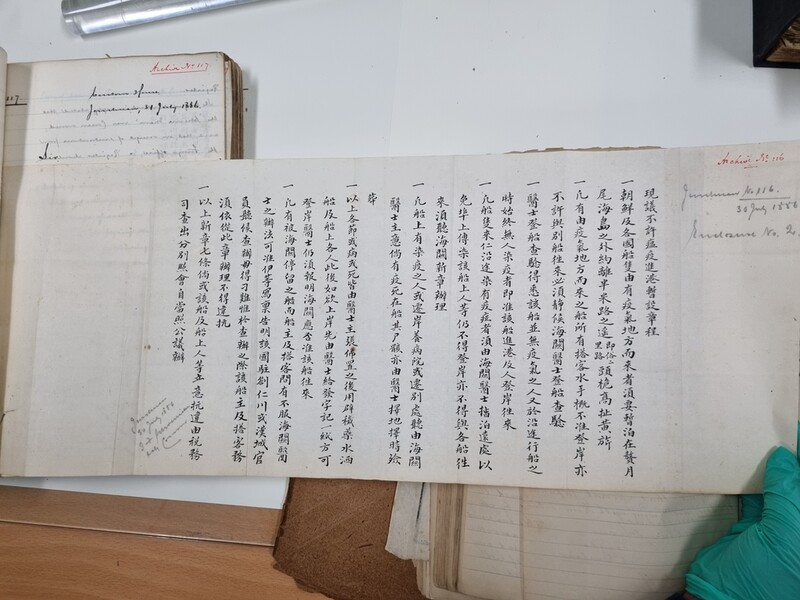 Archive No. 117
Custom House
Jenchuan, 31 July 1886.
Sir
Archive No. 116
Jenchuan No. 116.
30 July 1886
Enclosure No. 2.
現議不許症疫進港暫設章程
一朝鮮及各國船隻由有疫氣地方而來者須要暫泊在月
尾海島之外約離半米路之遠即俗二里路頭桅高扯黃旂
一凡有由疫氣地方而來之船所有搭客水手概不准登岸亦
不許與別船往來必須靜候海關醫士登船查驗
一醫士登船查驗得悉該船並無疫氣之人又於沿途行船之
時始終無人染疫者即准該船進港及人登岸往來
一凡船隻來仁沿途染有疫者須由海關醫士指泊遠處以
免埠上傳染該船上人等仍不得登岸亦不得與各船往
來須聽海關新章辦理
一凡船上有染疫之人或遷岸養病院或遷別處聽由海關
醫士主意倘有疫死在船其尸骸亦由醫士擇地擇時殮
葬
一以上各節或病或死皆由醫士主張佈置之後用辟穢藥水洒
船及船上各人此後如欲上岸先由醫士給發字記一紙方可
登岸醫士仍須報明海關應否准該船往來
一凡有被海關停留之船而船主及搭客間有不服海關醫
士之辦法可准伊等寫稟告明該國駐劄仁川或漢城官
員聽候查辦毋得刁難惟於查辦之際該船主及搭客務
須依從此章辦理不得違抗
一以上新章七條倘或該船及船上人等立意抗違由稅務
司查出分別照會自當照公議辦
Jenchuan
30 July 1886